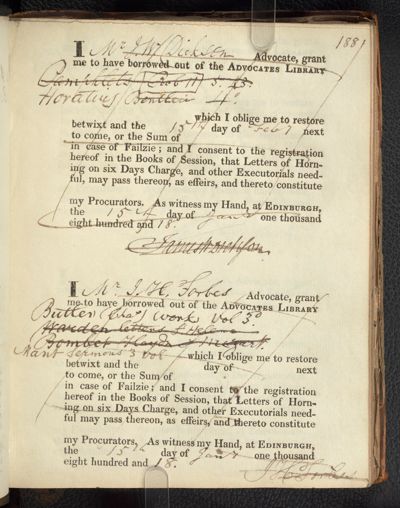 1881
I Mr J. W. Dickson Advocate, grant
me to have borrowed out of the ADVOCATES LIBRARY
Pamphlets
Horatius Bentleii 4o
which I oblige me to restore
betwixt and the 15th day of Feby next
to come, or the Sum of
in case of Failzie; and I consent to the registration
hereof in the Books of Session, that Letters of Horn-
ing on six Days Charge, and other Executorials need-
ful, may pass thereon, as effeirs, and thereto constitute
my Procurators. As witness my Hand, at EDINBURGH,
the 15th day of Jany one thousand
eight hundred and 18.
I Mr. J. H. Forbes Advocate, grant
me to have borrowed out of the ADVOCATES LIBRARY
Butler (Chas) Work Vol 3d
Warden Letters St Helena
Bombet Haydn &
Mant Sermons 3 vol which I oblige me to restore
betwixt and the day of next
to come, or the Sum of
in case of Failzie; and I consent to the registration
hereof in the Books of Session, that Letters of Horn-
ing on six Days Charge, and other Executorials need-
ful may pass thereon, as effeirs, and thereto constitute
my Procurators, As witness my Hand, at EDINBURGH,
the 15th day of Jany one thousand
eight hundred and 18.
J H Forbes